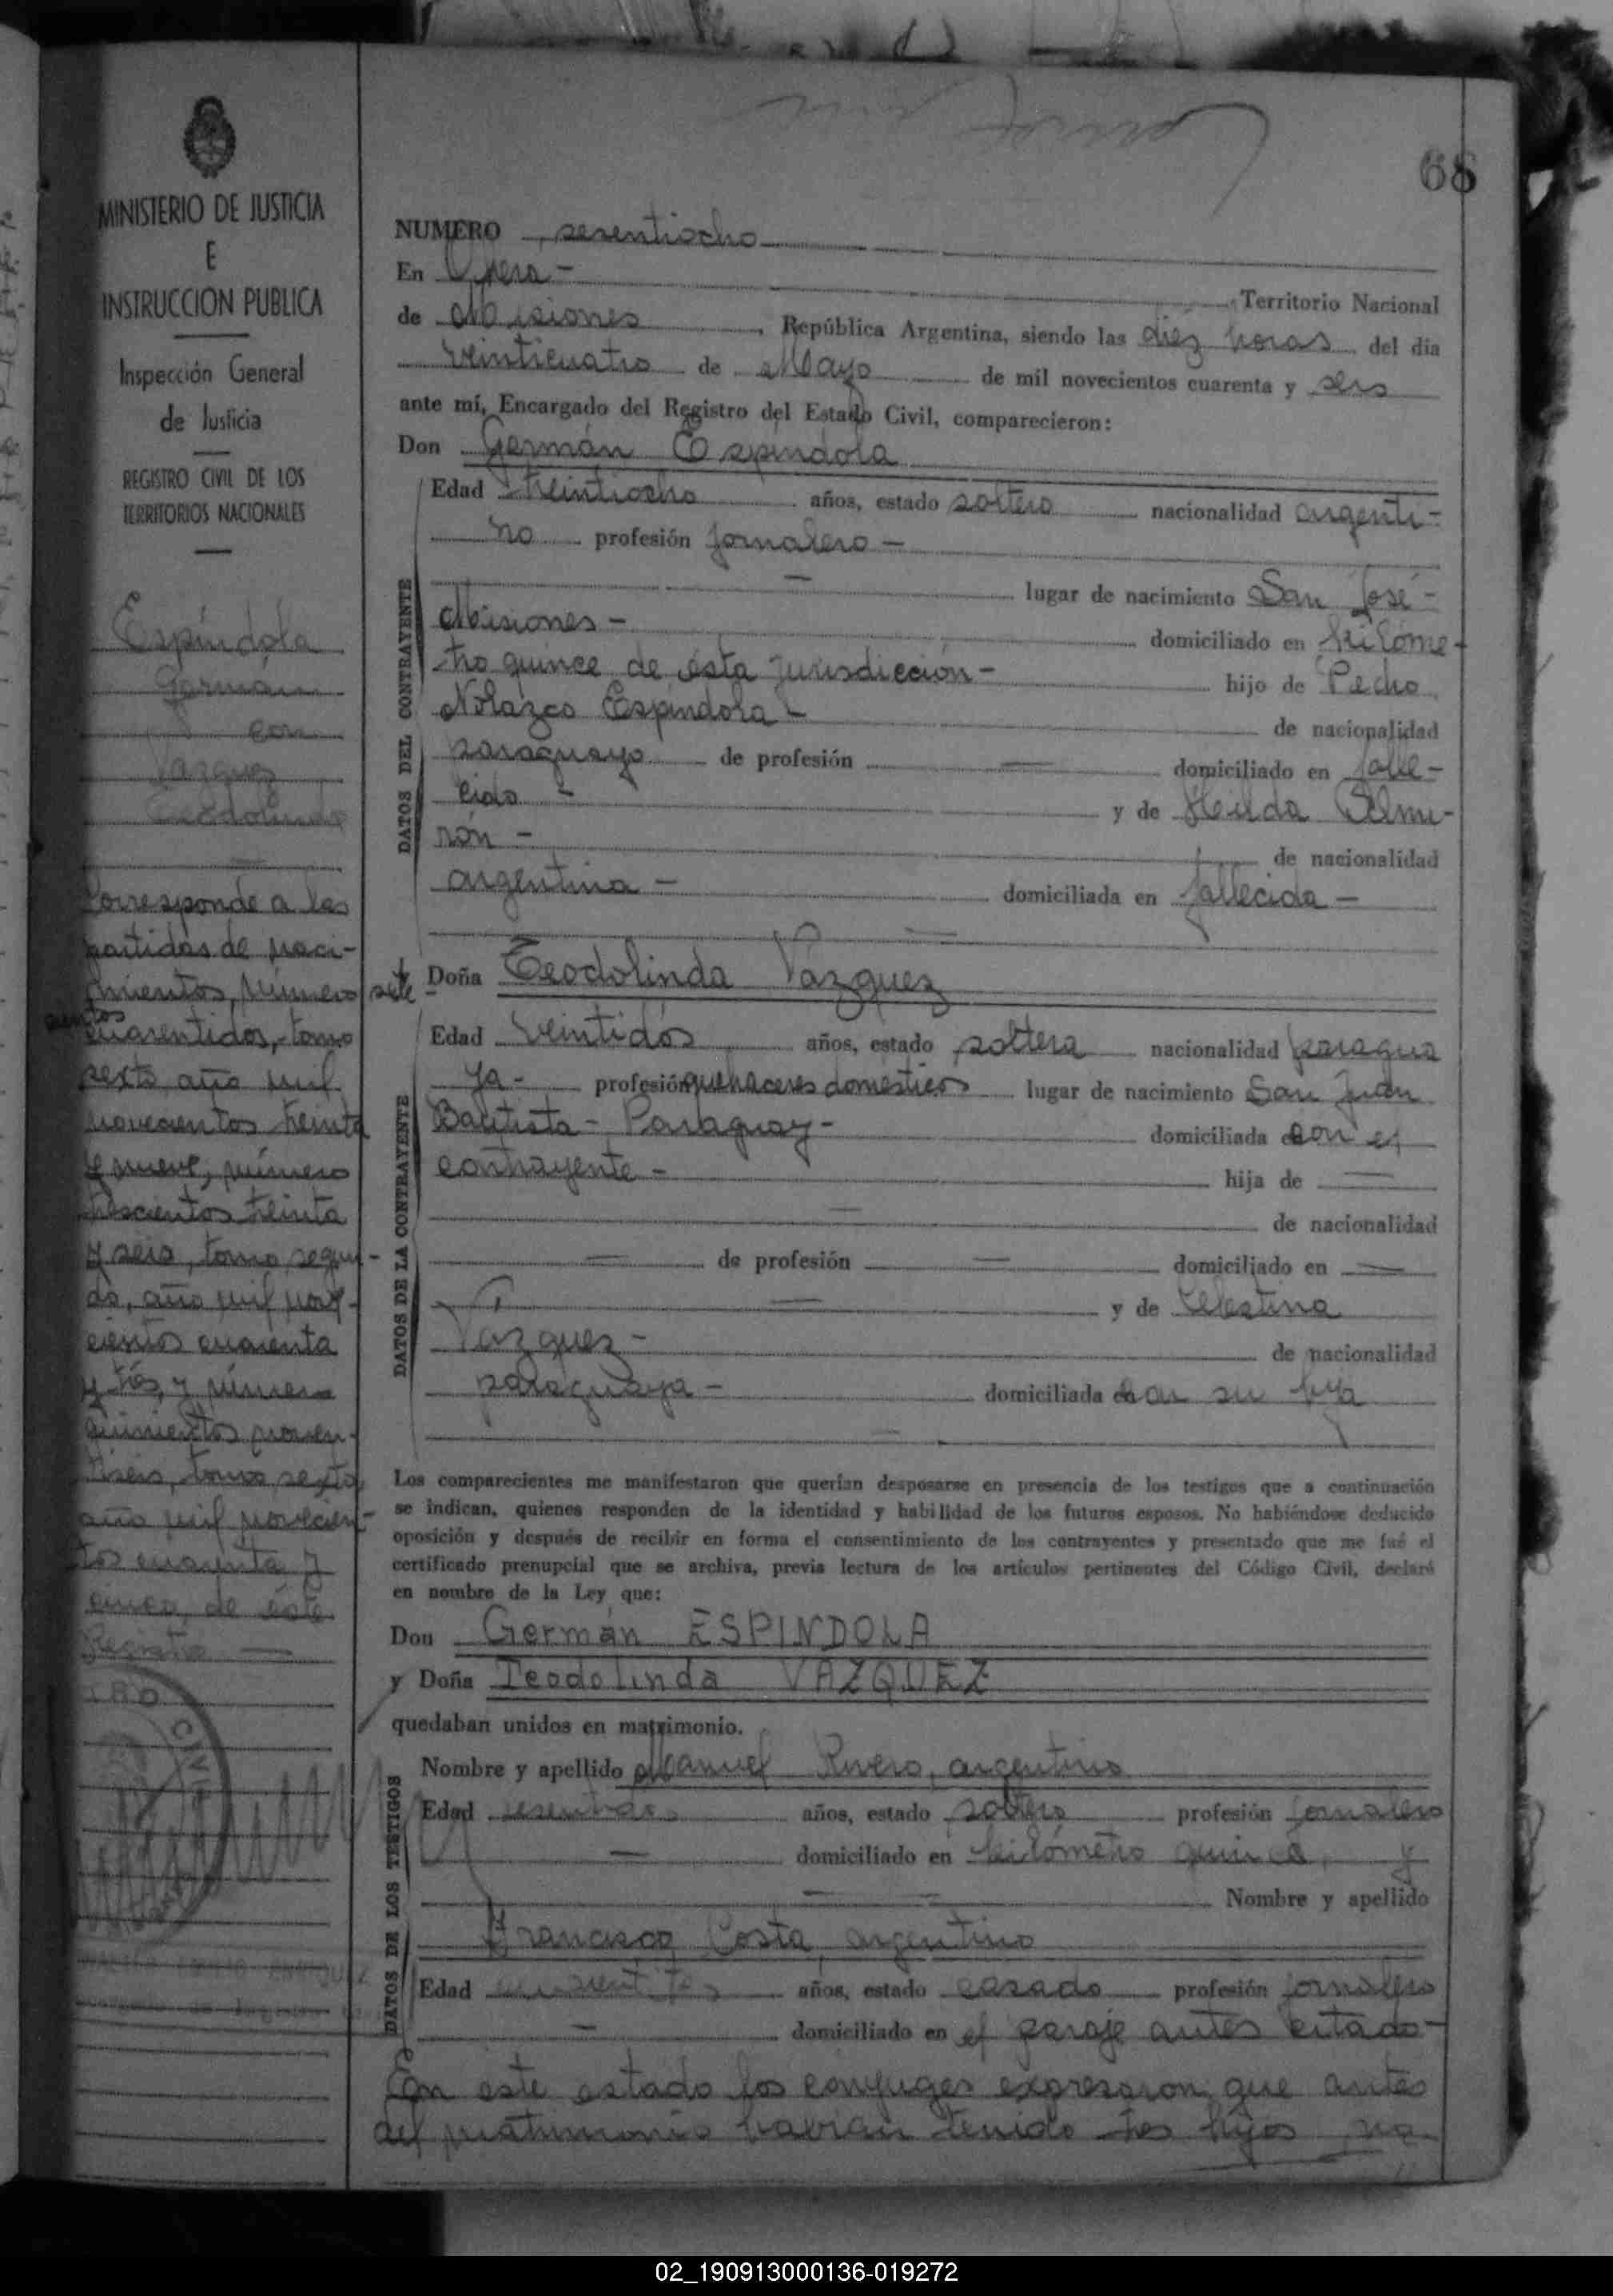 68
MINISTERIO DE JUSTICIA
E
INSTRUCCION PUBLICA
Inspección General
de Justicia
REGISTRO CIVIL DE LOS
TERRITORIOS NACIONALES
Espíndola
Germán
con
Vázquez
Teodolinda
Corresponde a las
partidas de naci-
mientos, número sete
cientos
cuarentidos, tomo
sexto año mil
novecientos treinta
y nueve, número
trescientos treinta
y seis, tomo segun-
do, año mil nove-
cientos cuarenta
y trés, y número
quinientos noven-
tiseis, tomo sexto
año mil novecien-
tos cuarenta y
cinco, de éste
Registro
NUMERO sesentiocho
En Opera -
Territorio Nacional
de Misiones, República Argentina, siendo las diéz horas del día
veinticuatro de Mayo de mil novecientos cuarenta y seis
ante mí, Encargado del Registro del Estado Civil, comparecieron:
Don Germán Espíndola
DATOS DEL CONTRAYENTE
Edad treintiocho años, estado soltero nacionalidad argenti-
no profesión jornalero -
lugar de nacimiento San José -
Misiones - domiciliado en kilóme-
tro quince de ésta jurisdicción - hijo de Pedro
Nolazco Espíndola - de nacionalidad
paraguayo de profesión — domiciliado en falle-
cido - y de Hilda Almi-
rón - de nacionalidad
argentina - domiciliada en fallecida -
Doña Teodolinda Vázquez
DATOS DE LA CONTRAYENTE
Edad veintidós años, estado soltera nacionalidad paragua
ya - profesión quehaceres domésticos lugar de nacimiento San Juan
Bautista - Paraguay - domiciliada con el
contrayente - hija de —
— de nacionalidad
— de profesión — domiciliado en —
— y de Celestina
Vázquez - de nacionalidad
paraguaya - domiciliada con su hija
Los comparecientes me manifestaron que querían desposarse en presencia de los testigos que a continuación
se indican, quienes responden de la identidad y habilidad de los futuros esposos. No habiéndose deducido
oposición y después de recibir en forma el consentimiento de los contrayentes y presentado que me fué el
certificado prenupcial que se archiva, previa lectura de los artículos pertinentes del Código Civil, declaré
en nombre de la Ley que:
Don Germán ESPINDOLA
y Doña Teodolinda VAZQUEZ
quedaban unidos en matrimonio.
DATOS DE LOS TESTIGOS
Nombre y apellido Manuel Rivero, argentino
Edad años, estado soltero profesión jornalero
— domiciliado en kilómetro quince, y
Nombre y apellido
Francisco Costa, argentino
Edad años, estado casado profesión jornalero
— domiciliado en el paraje antes citado -
En este estado los conyuges expresaron que antes
del matrimonio habían tenido tres hijos na-
02_190913000136-019272